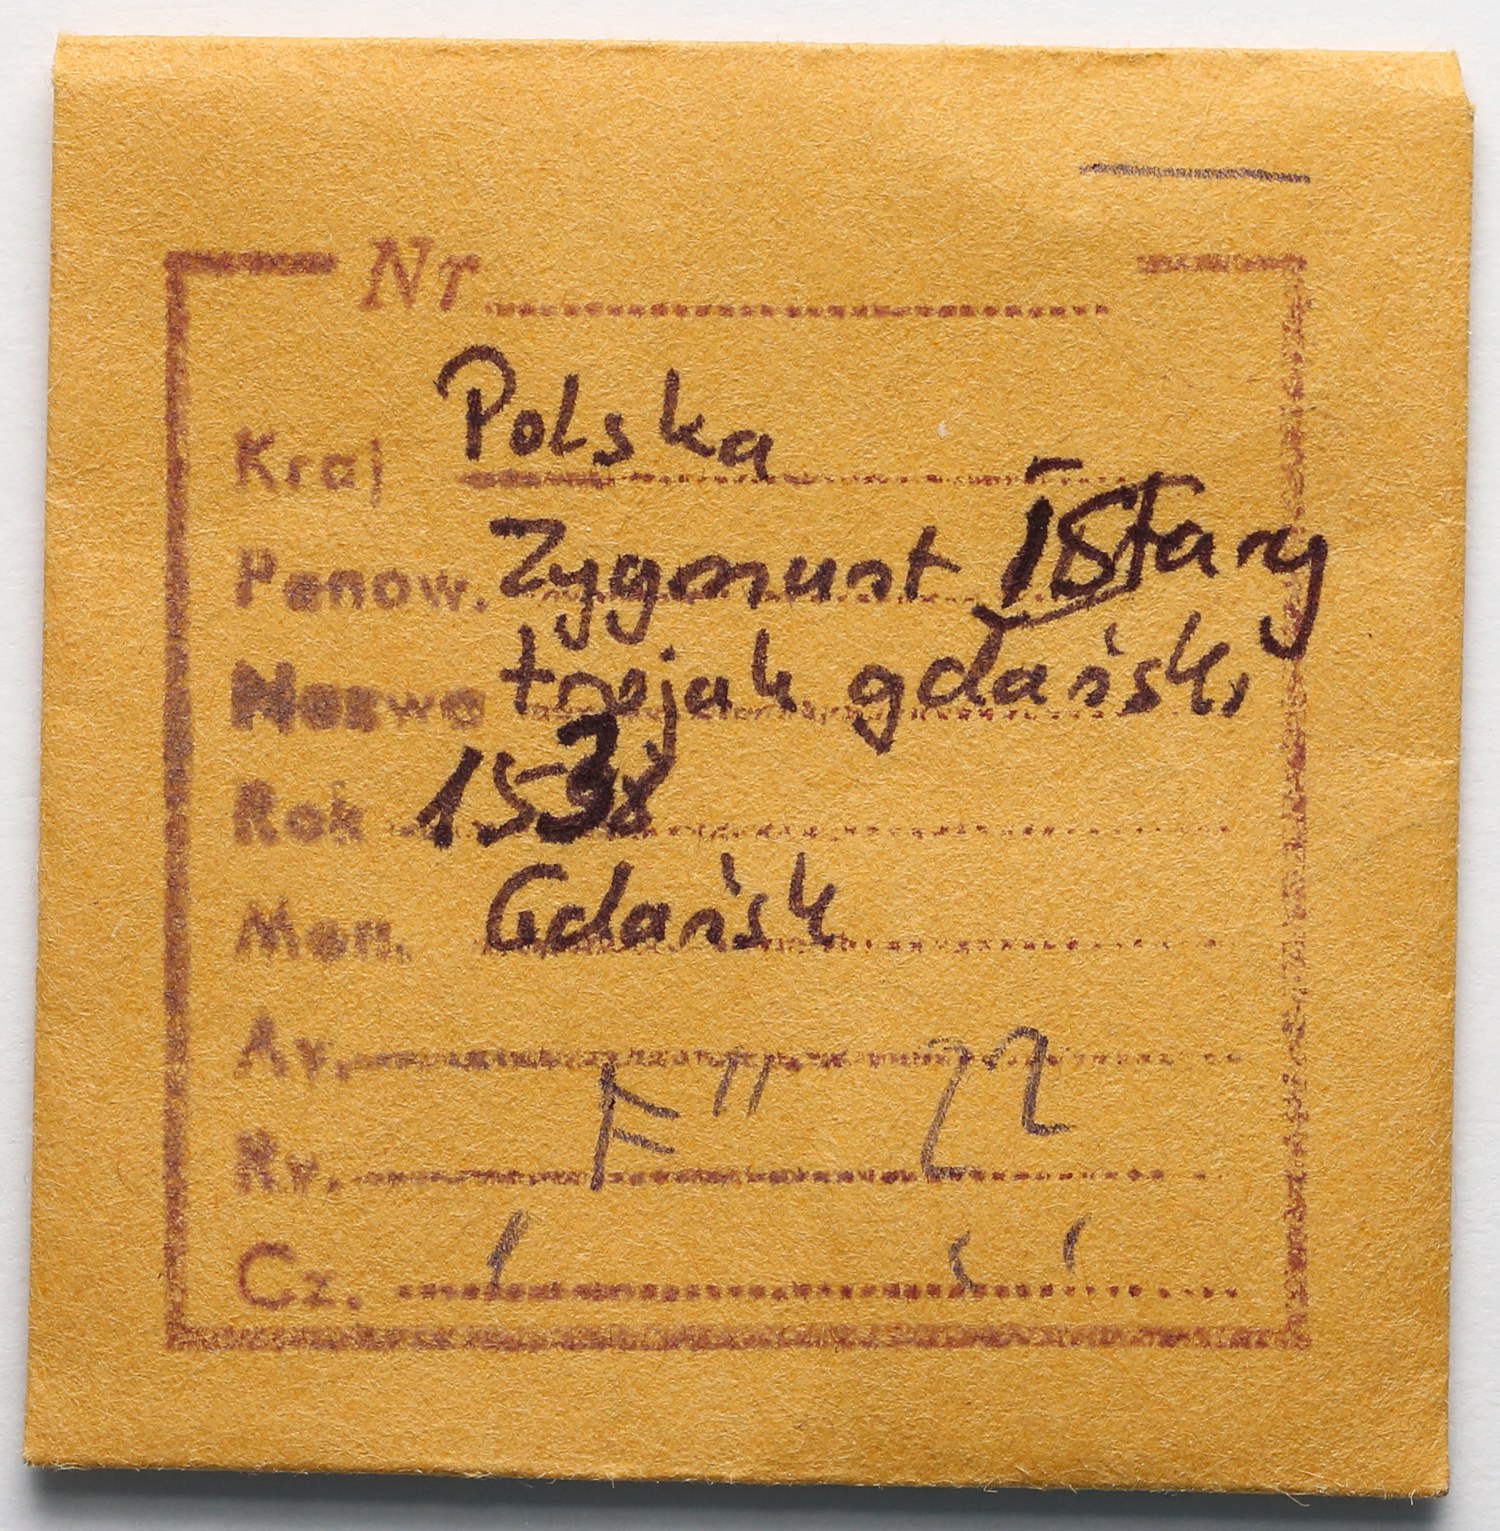 Nr
Kraj Polska
Panow. Zygmunt I Stary
Nazwa trojak gdański
Rok 1538
Men. Gdańsk
Av.
Rv.
Cz.